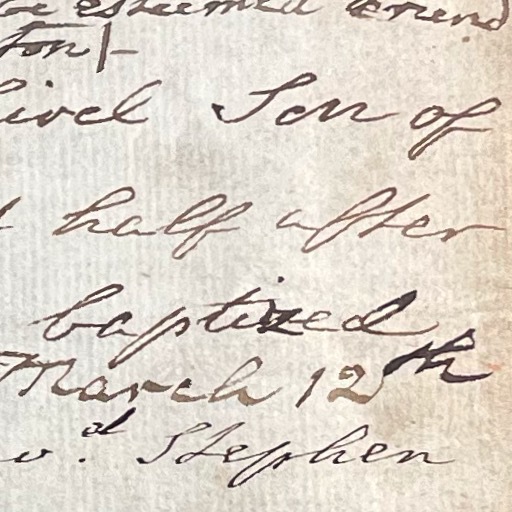 esteemed Friend
ton/-
Son of
half after
baptized
March 12th
Stephen